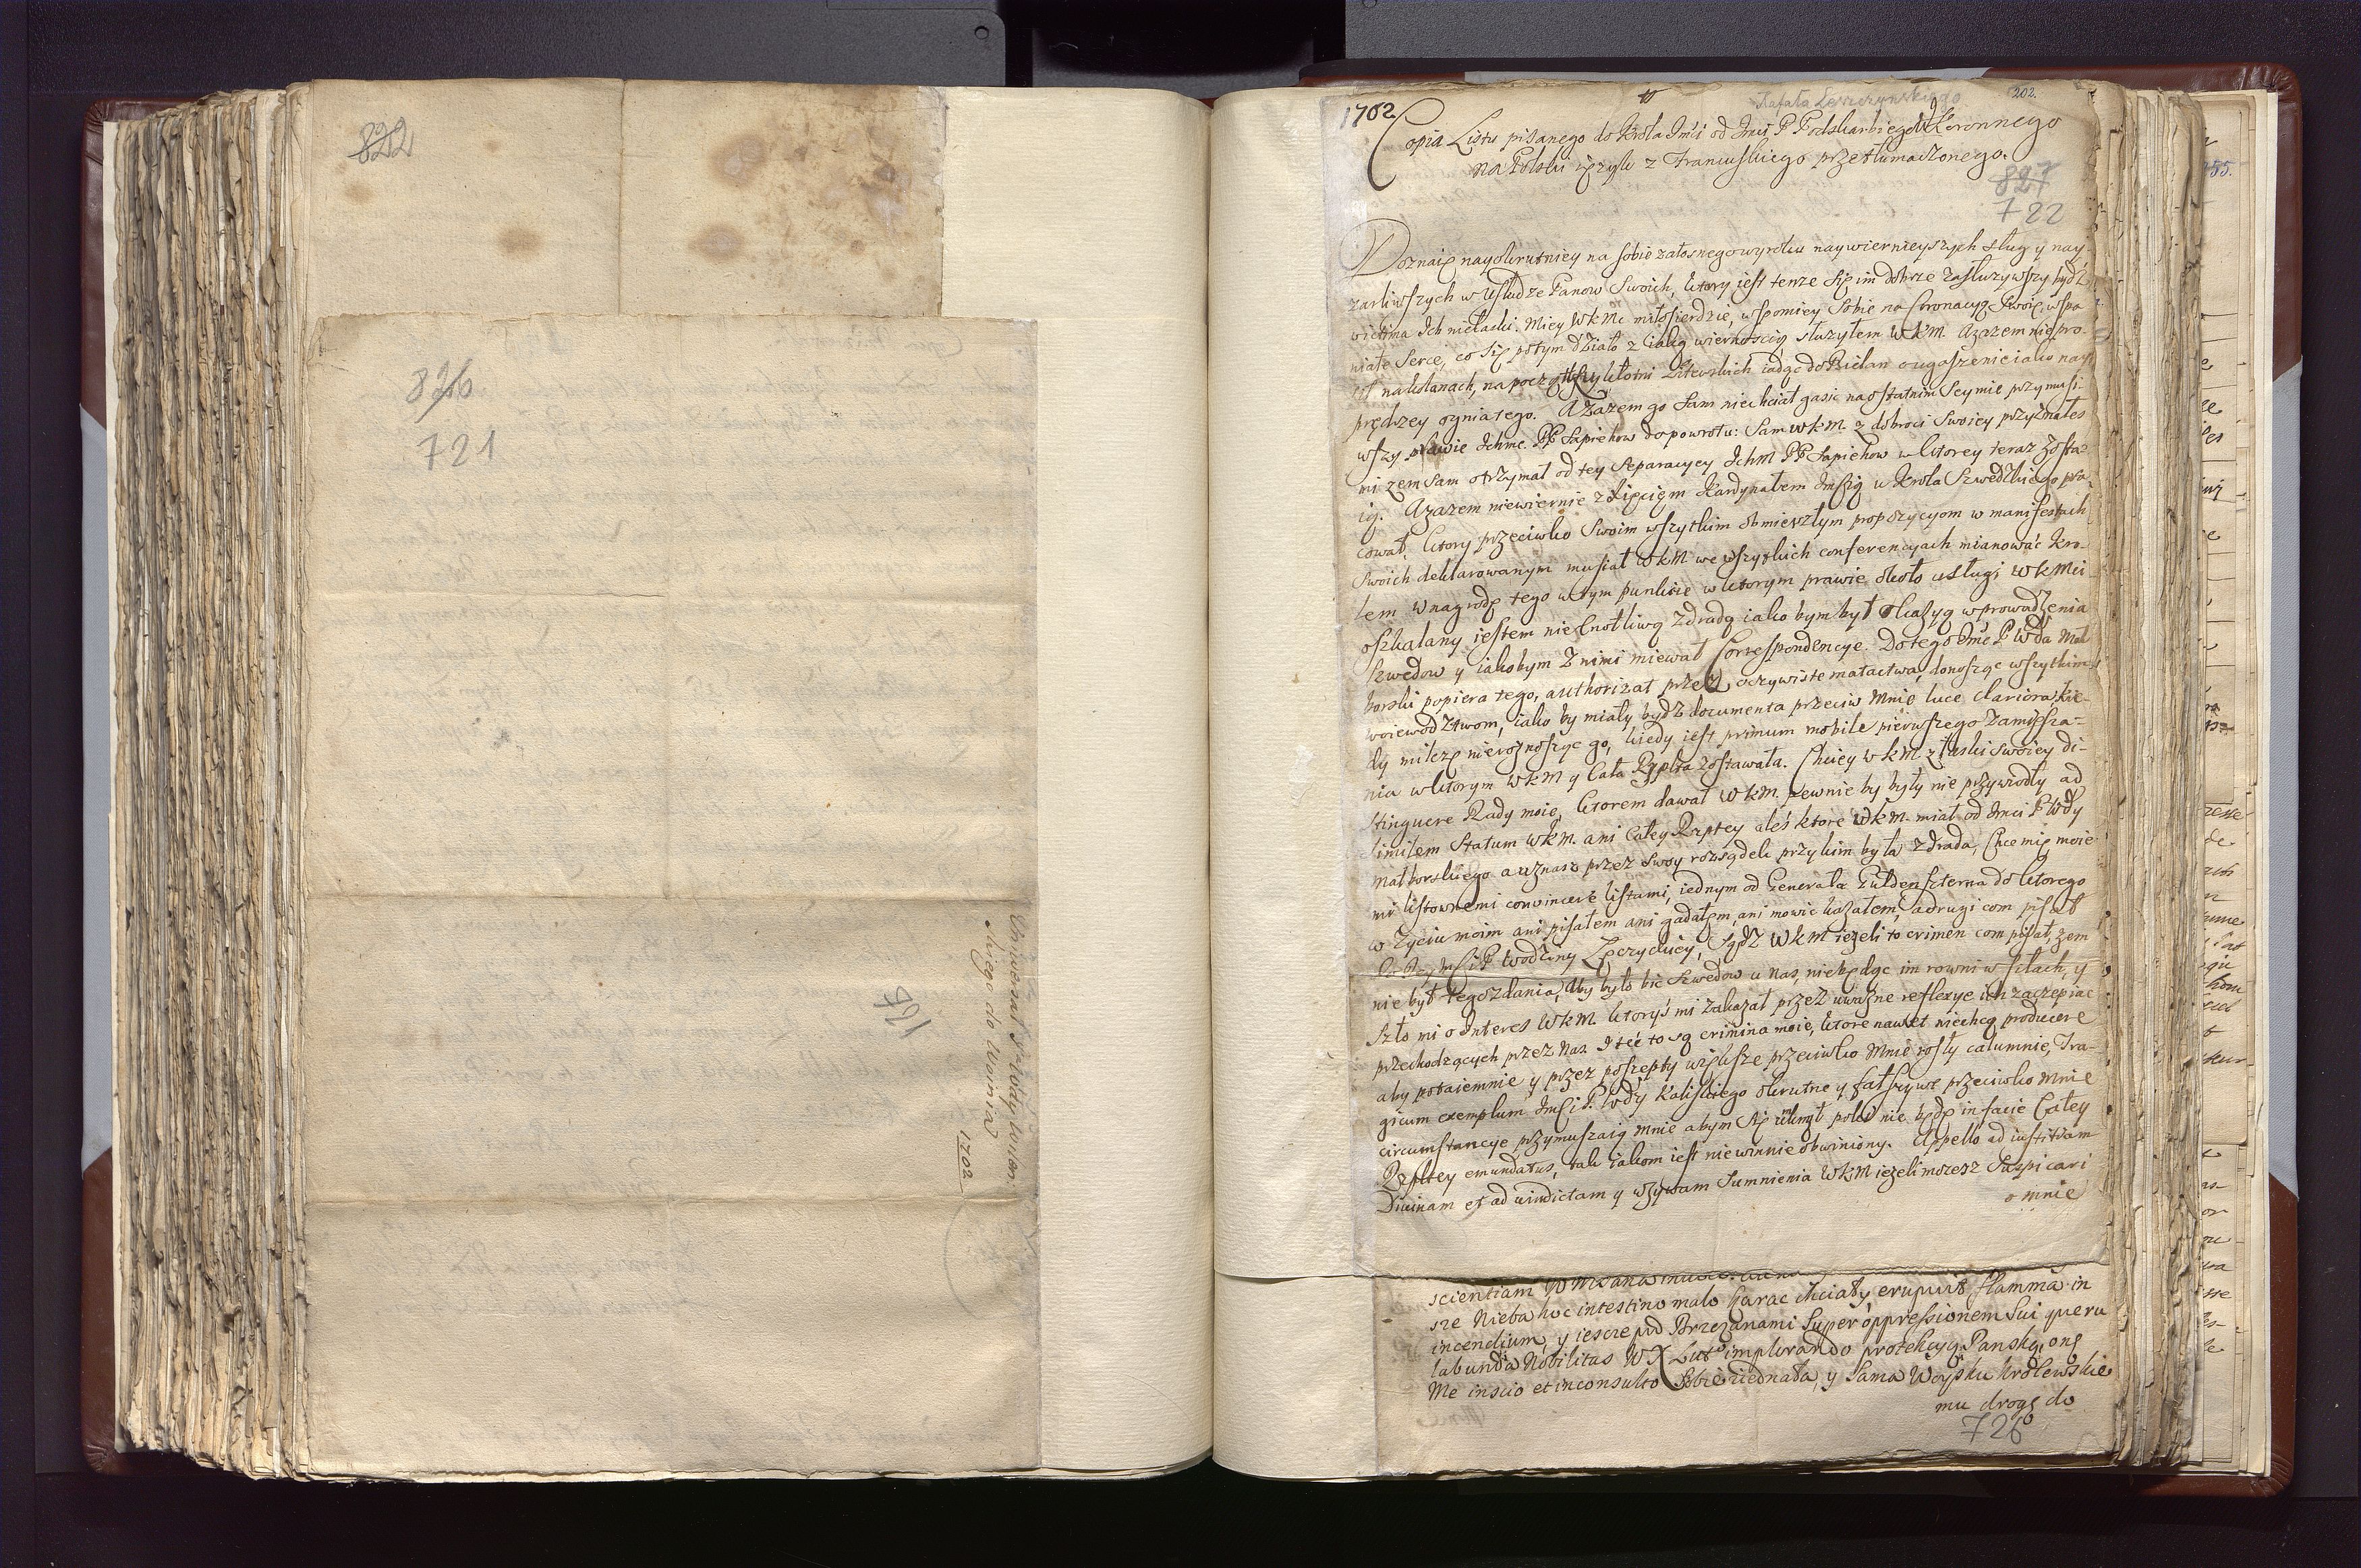 822
826
721
Uniwersał
skiego do Woiewod
1702
197
1702
Rafała Leszczynskiego
202.
Copia Listu pisanego do Krola Jmci od Jmci P Podskarbiego W Koronnego
na Polski ięzyk z Francuskiego przetłumaczonego.
827
722
Doznaię nayokrutniey na sobie załosnego wyroku naywiernieyszych sług y nay-
zarliwszych w Usłudze Panow Swoich, ktory iest tenze się im dobrze zasłuzywszy bydz
wictima Ich niełaski. Miey WKMc miłosierdzie, wspomniey Sobie na Coronacyą Swoię, wspa
niałe Serce, co się potym działo z iaką wiernoscią słuzyłem WKM. Azazem nie pro-
sił na kolanach, na początku kłotni Litewskich iadąc do Bielan o ugaszenie iako nay
prędzey ognia tego. Azazem go Sam nie chciał gasic na ostatnim Seymie przymusi-
wszy prawie Ichmc PP Sapiehow do powrotu: Sam WKM. z dobroci Swoiey przyznałes
mi zem Sam otrzymał od tey Separacyey Ichm PP Sapiehow w ktorey teraz zosta-
ią. Azazem niewiernie z Xięciem Kardynałem Jmscią u Krola Szwedzkiego pra-
cował, ktory przeciwko Swoim wszytkim obmierzłym propozycyom w manifestach
Swoich deklarowanym musiał WKM we wszytkich conferencyach mianować Kro-
lem w nagrodę tego w tym punkcie w ktorym prawie około usługi WKMci
oszkalany iestem niecnotliwą zdradą iako bym był okazyą wprowadzenia
Szwedow y iakobym z nimi miewał Correspondencye. Do tego Jmc P Wda Mal
borski popiera tego, authorizat przez oczywiste matactwa, donosząc wszytkim
woiewodztwom, iako by miały bydz documenta przeciw mnie luce clariora kie-
dy milczę nieroznosząc go, kiedy iest primum mobile pierwszego zamiesza-
nia w ktorym WKM y Cała Rzplta zostawała. Chciey WKM z łaski swoiey di-
stinguere Rady moie, ktorem dawał WKM. pewnie by były nie przywiodły ad
similem Statum WKM. ani Całey Rzptey ales ktore WKM. miał od Jmci P Wdy
Malborskiego a uznasz przez Swoy rozsądek przy kim była zdrada, Chce mię moie
mi listownemi convincere listami, iednym od Generała Guldenszterna do ktorego
w zyciu moim ani pisałem ani gadałem, ani mowic kazałem, a drugi com pisał
do Jeymsci P. Wodziny Łęczyckiey, Sądz WKM iezeli to crimen com pisał, zem
nie był tego zdania, aby było bic Szwedow u nas, niebędąc im rowni w siłach, y
szło mi o Interes WKM. ktorys mi zakazał przez uwazne reflexye ich zaczepiac
przechodzących przez nas. I teć to są crimina moie, ktore nawet niechcą producere
aby potaiemnie y przez poszepty większe przeciwko mnie rosły calumnie, Tra-
gicum exemplum Jmsci P. Wdy Kaliskiego okrutne y fałszywe przeciwko mnie
circumstancye przymuszaią mnie abym się umknął poki nie będę in facie Całey
Rzpltey emundatus, tak iakom iest niewinnie obwiniony. Appello ad iustitiam
Divinam et ad vindictam y wzywam Sumnienia WKM iezeli mozesz Suspicari
o mnie
scientiam
sze Nieba hoc intestino malo karac chciały, erupuit flamma in
incendium, y iescze pod Brzezanami Super oppressionem Sui queru
labunda Nobilitas WX Litt implorando protekcyą Panską, oną
Me inscio et inconsulto Sobie ziednała, y Sama Woysku Krolewskie
mu drogę do
726